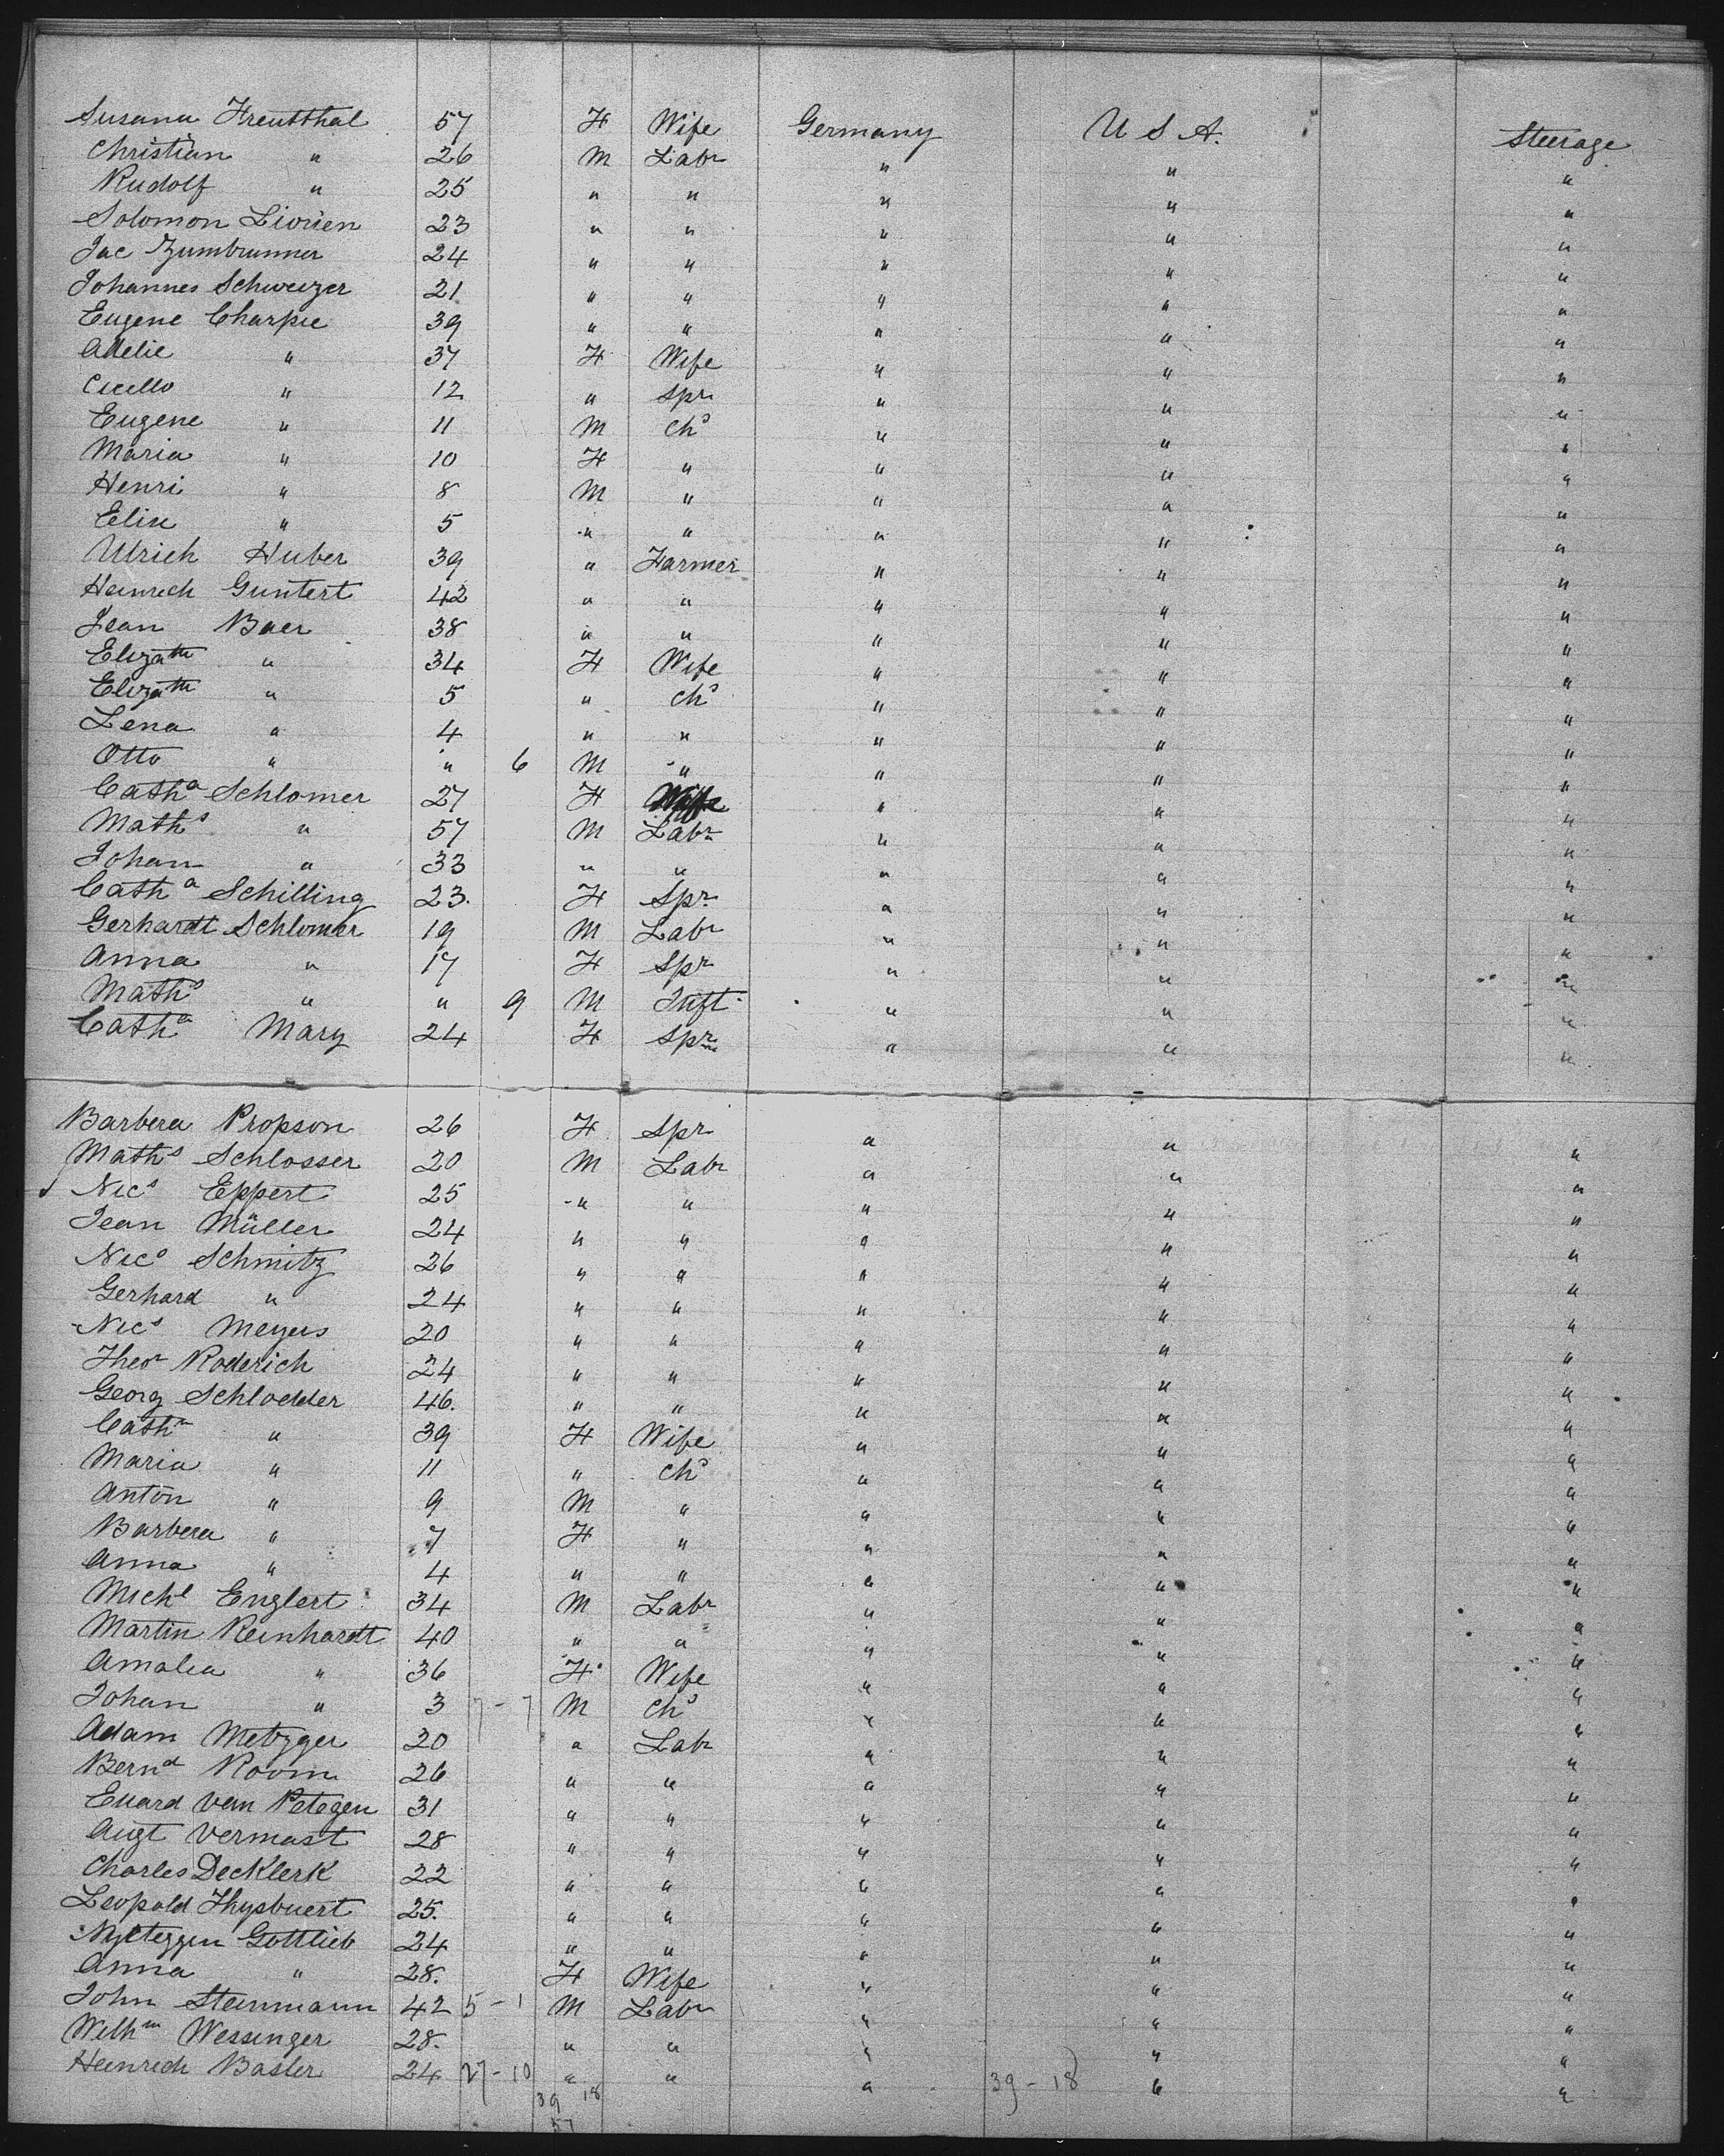 Susana Freutthal 57 F Wife Germany U S A. Steerage
Christian " 26 M Labr " " "
Rudolf " 25 " " " " "
Solomon Liorien 23 " " " " "
Jac Zumbrunner 24 " " " " "
Johannes Schweizer 21 " " " " "
Eugene Charpie 39 " " " " "
Adelie " 37 F Wife " " "
Cicello " 12 " Spr " " "
Eugene " 11 M Chd " " "
Maria " 10 F " " " "
Henri " 8 M " " " "
Elise " 5 " " " " "
Ulrich Huber 39 " Farmer " " "
Heinrech Guntert 42 " " " " "
Jean Baer 38 " " " " "
Elizath " 34 F Wife " " "
Elizath " 5 " Chd " " "
Lena " 4 " " " " "
Otto " " 6 M " " " "
Catha Schlomer 27 F Wife " " "
Maths " 57 M Labr " " "
Johan " 33 " " " " "
Catha Schilling 23. F Spr " " "
Gerhardt Schlomer 19 M Labr " " "
Anna " 17 F Spr " " "
Maths " " 9 M Inft " " "
Catha Mary 24 F Spr " " "
Barbera Propson 26 F Spr " " "
Maths Schlosser 20 M Labr " " "
Nics Eppert 25 " " " " "
Jean Müller 24 " " " " "
Nics Schmitz 26 " " " " "
Gerhard " 24 " " " " "
Nics Meyers 20 " " " " "
Theor Roderich 24 " " " " "
Georg Schloedder 46. " " " " "
Catha " 39 F Wife " " "
Maria " 11 " Chd " " "
Anton " 9 M " " " "
Barbera " 7 F " " " "
Anna " 4 " " " " "
Michl Englert 34 M Labr " " "
Martin Reinhardt 40 " " " " "
Amalia " 36 F Wife " " "
Johan " 3 7-7 M Chd " " "
Adam Metzger 20 " Labr " " "
Bernd Room 26 " " " " "
Euard Van Petegen 31 " " " " "
Augt Vermast 28 " " " " "
Charles Decklerk 22 " " " " "
Leopold Thysbuert 25. " " " " "
Nyeteggen Gottlieb 24 " " " " "
Anna " 28. F Wife " " "
John Steinmann 42 5-1 M Labr " " "
Wilhm Wessinger 28. " " " " "
Heinrich Basler 24 27-10 " " " 39-18 " "
39 18
57